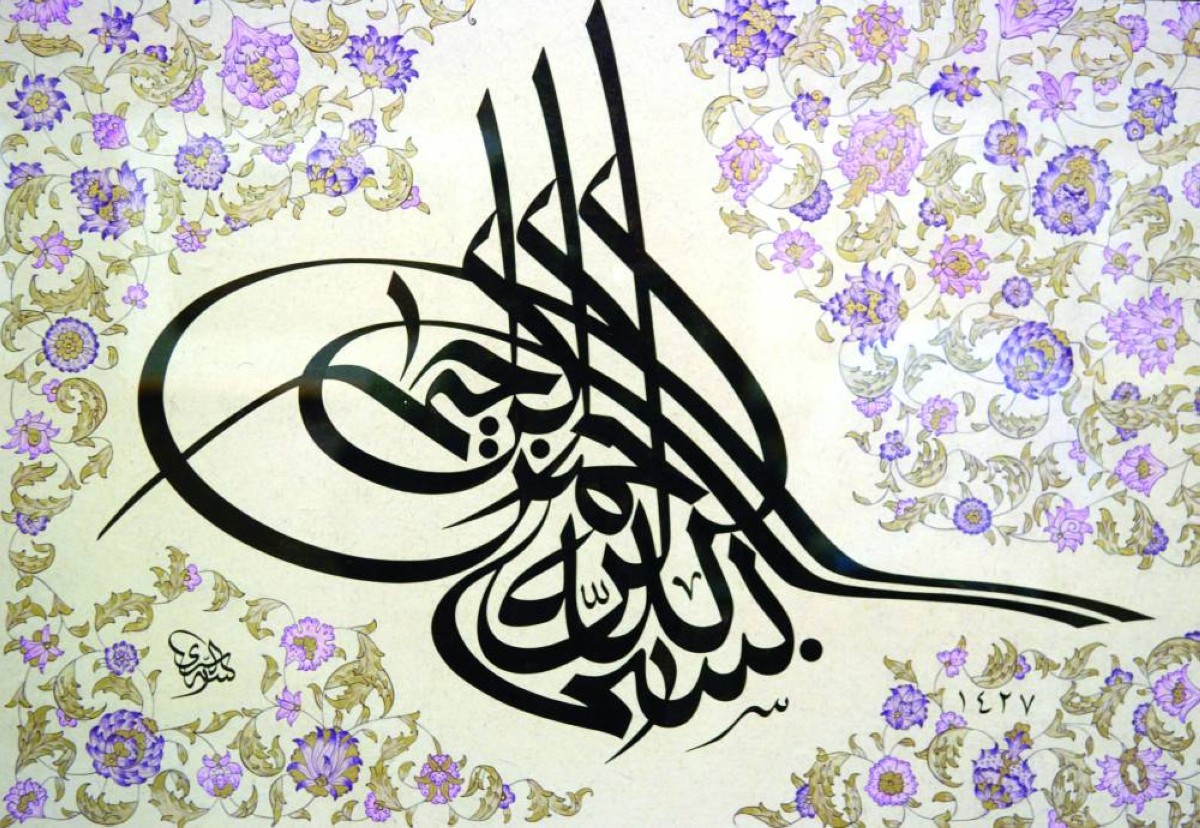 بسم الله الرحمن الرحيم
١٤٢٧